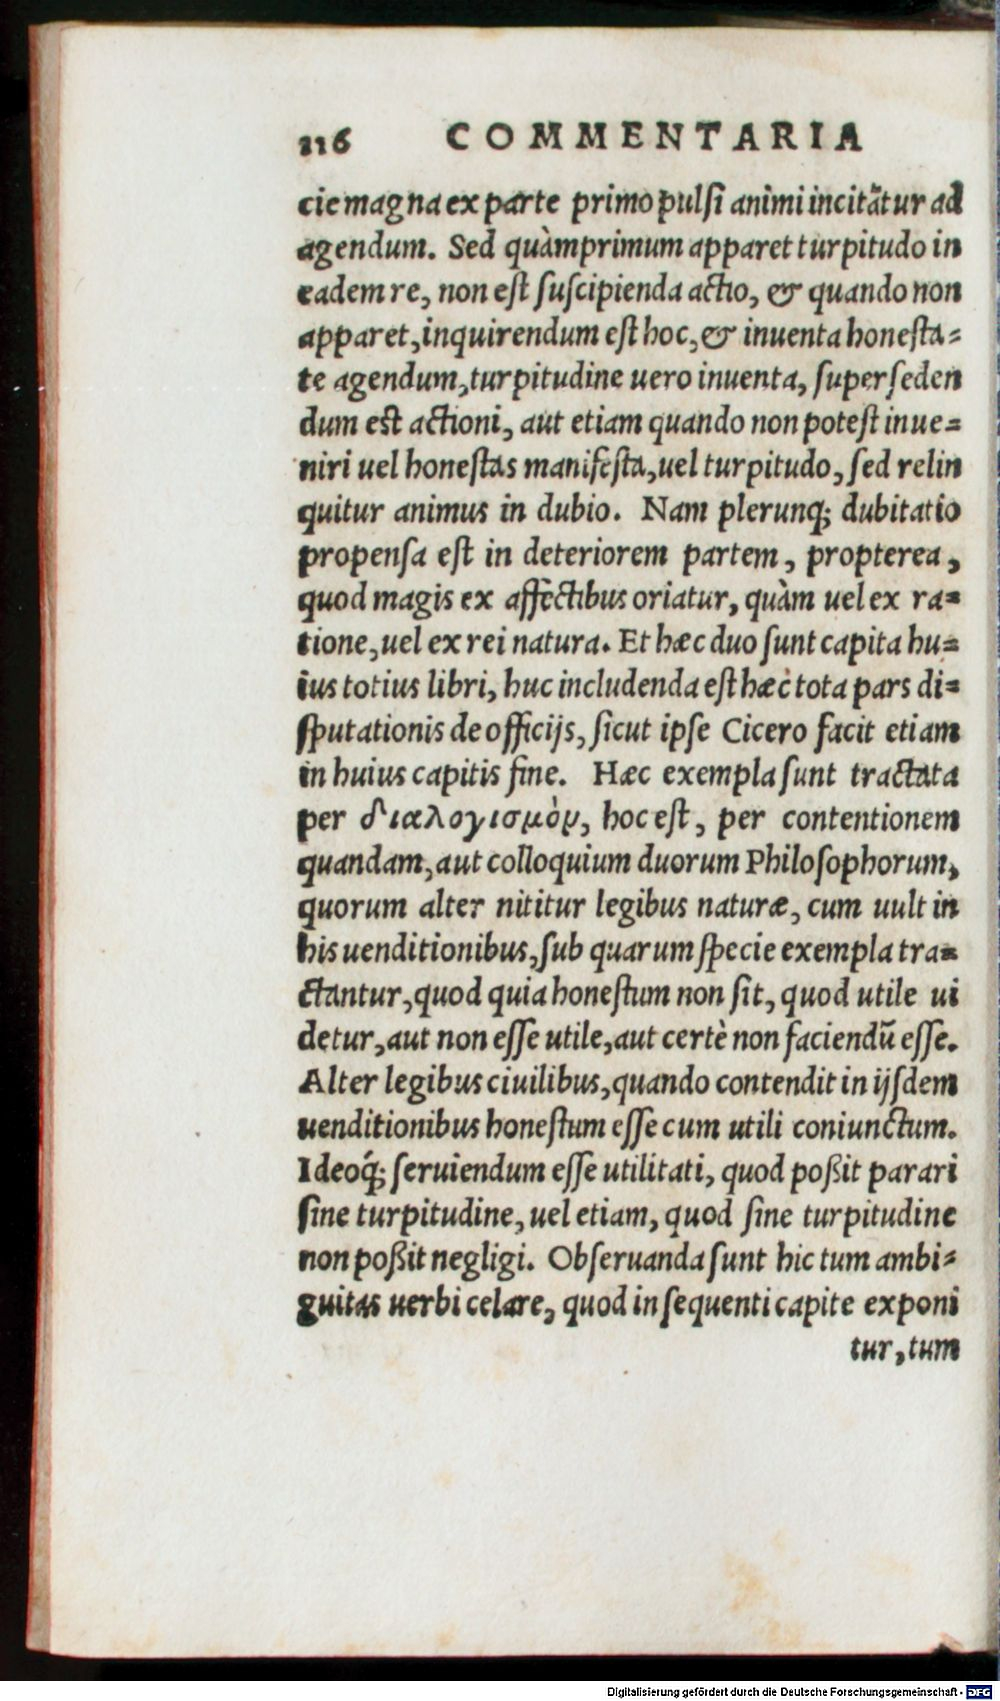 116 COMMENTARIA
cie magna ex parte primo pulsi animi incitātur ad
agendum. Sed quàmprimum apparet turpitudo in
eadem re, non est suscipienda actio, & quando non
apparet, inquirendum est hoc, & inuenta honesta-
te agendum, turpitudine uero inuenta, superseden
dum est actioni, aut etiam quando non potest inue-
niri uel honestas manifesta, uel turpitudo, sed relin
quitur animus in dubio. Nam plerunq; dubitatio
propensa est in deteriorem partem, propterea,
quod magis ex affectibus oriatur, quàm uel ex ra-
tione, uel ex rei natura. Et hæc duo sunt capita hu-
ius totius libri, huc includenda est hæc tota pars di-
sputationis de officijs, sicut ipse Cicero facit etiam
in huius capitis fine. Hæc exempla sunt tractata
per διαλογισμὸν, hoc est, per contentionem
quandam, aut colloquium duorum Philosophorum,
quorum alter nititur legibus naturæ, cum uult in
his uenditionibus, sub quarum specie exempla tra-
ctantur, quod quia honestum non sit, quod utile ui
detur, aut non esse utile, aut certè non faciendū esse.
Alter legibus ciuilibus, quando contendit in ijsdem
uenditionibus honestum esse cum utili coniunctum.
Ideoq́; seruiendum esse utilitati, quod poßit parari
sine turpitudine, uel etiam, quod sine turpitudine
non poßit negligi. Obseruanda sunt hic tum ambi-
guitas uerbi celare, quod in sequenti capite exponi
tur, tum
Digitalisierung gefördert durch die Deutsche Forschungsgemeinschaft - DFG